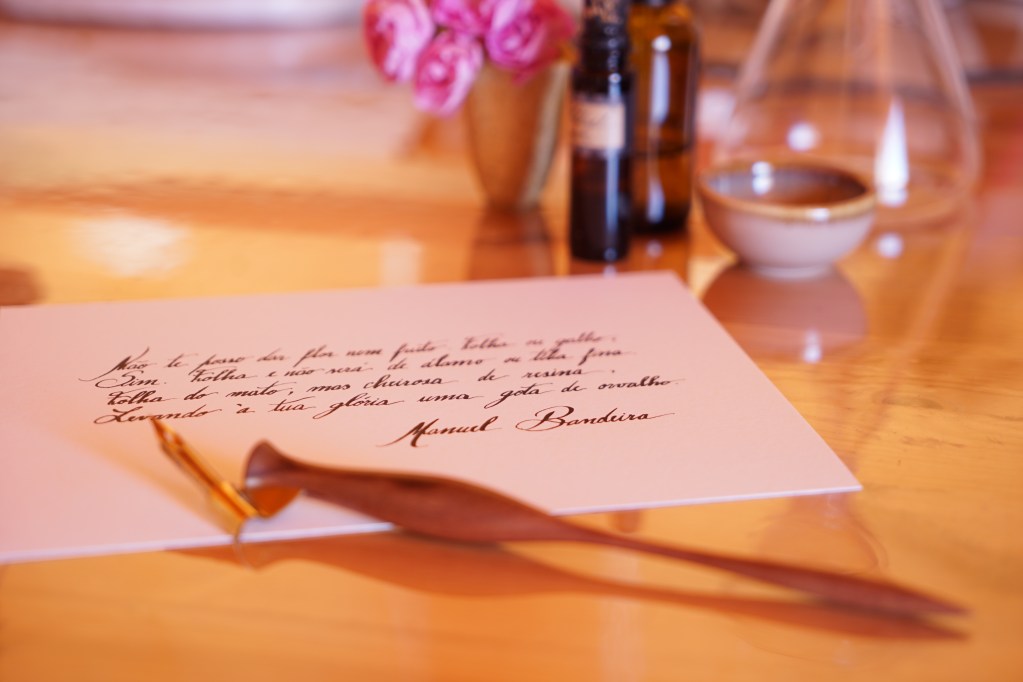 Não te posso dar flor nem fruto folha ou galho.
Sim. Folha e não será de álamo ou tília fina
Folha do mato, mas cheirosa de resina,
Levando à tua glória uma gota de orvalho.
Manuel Bandeira